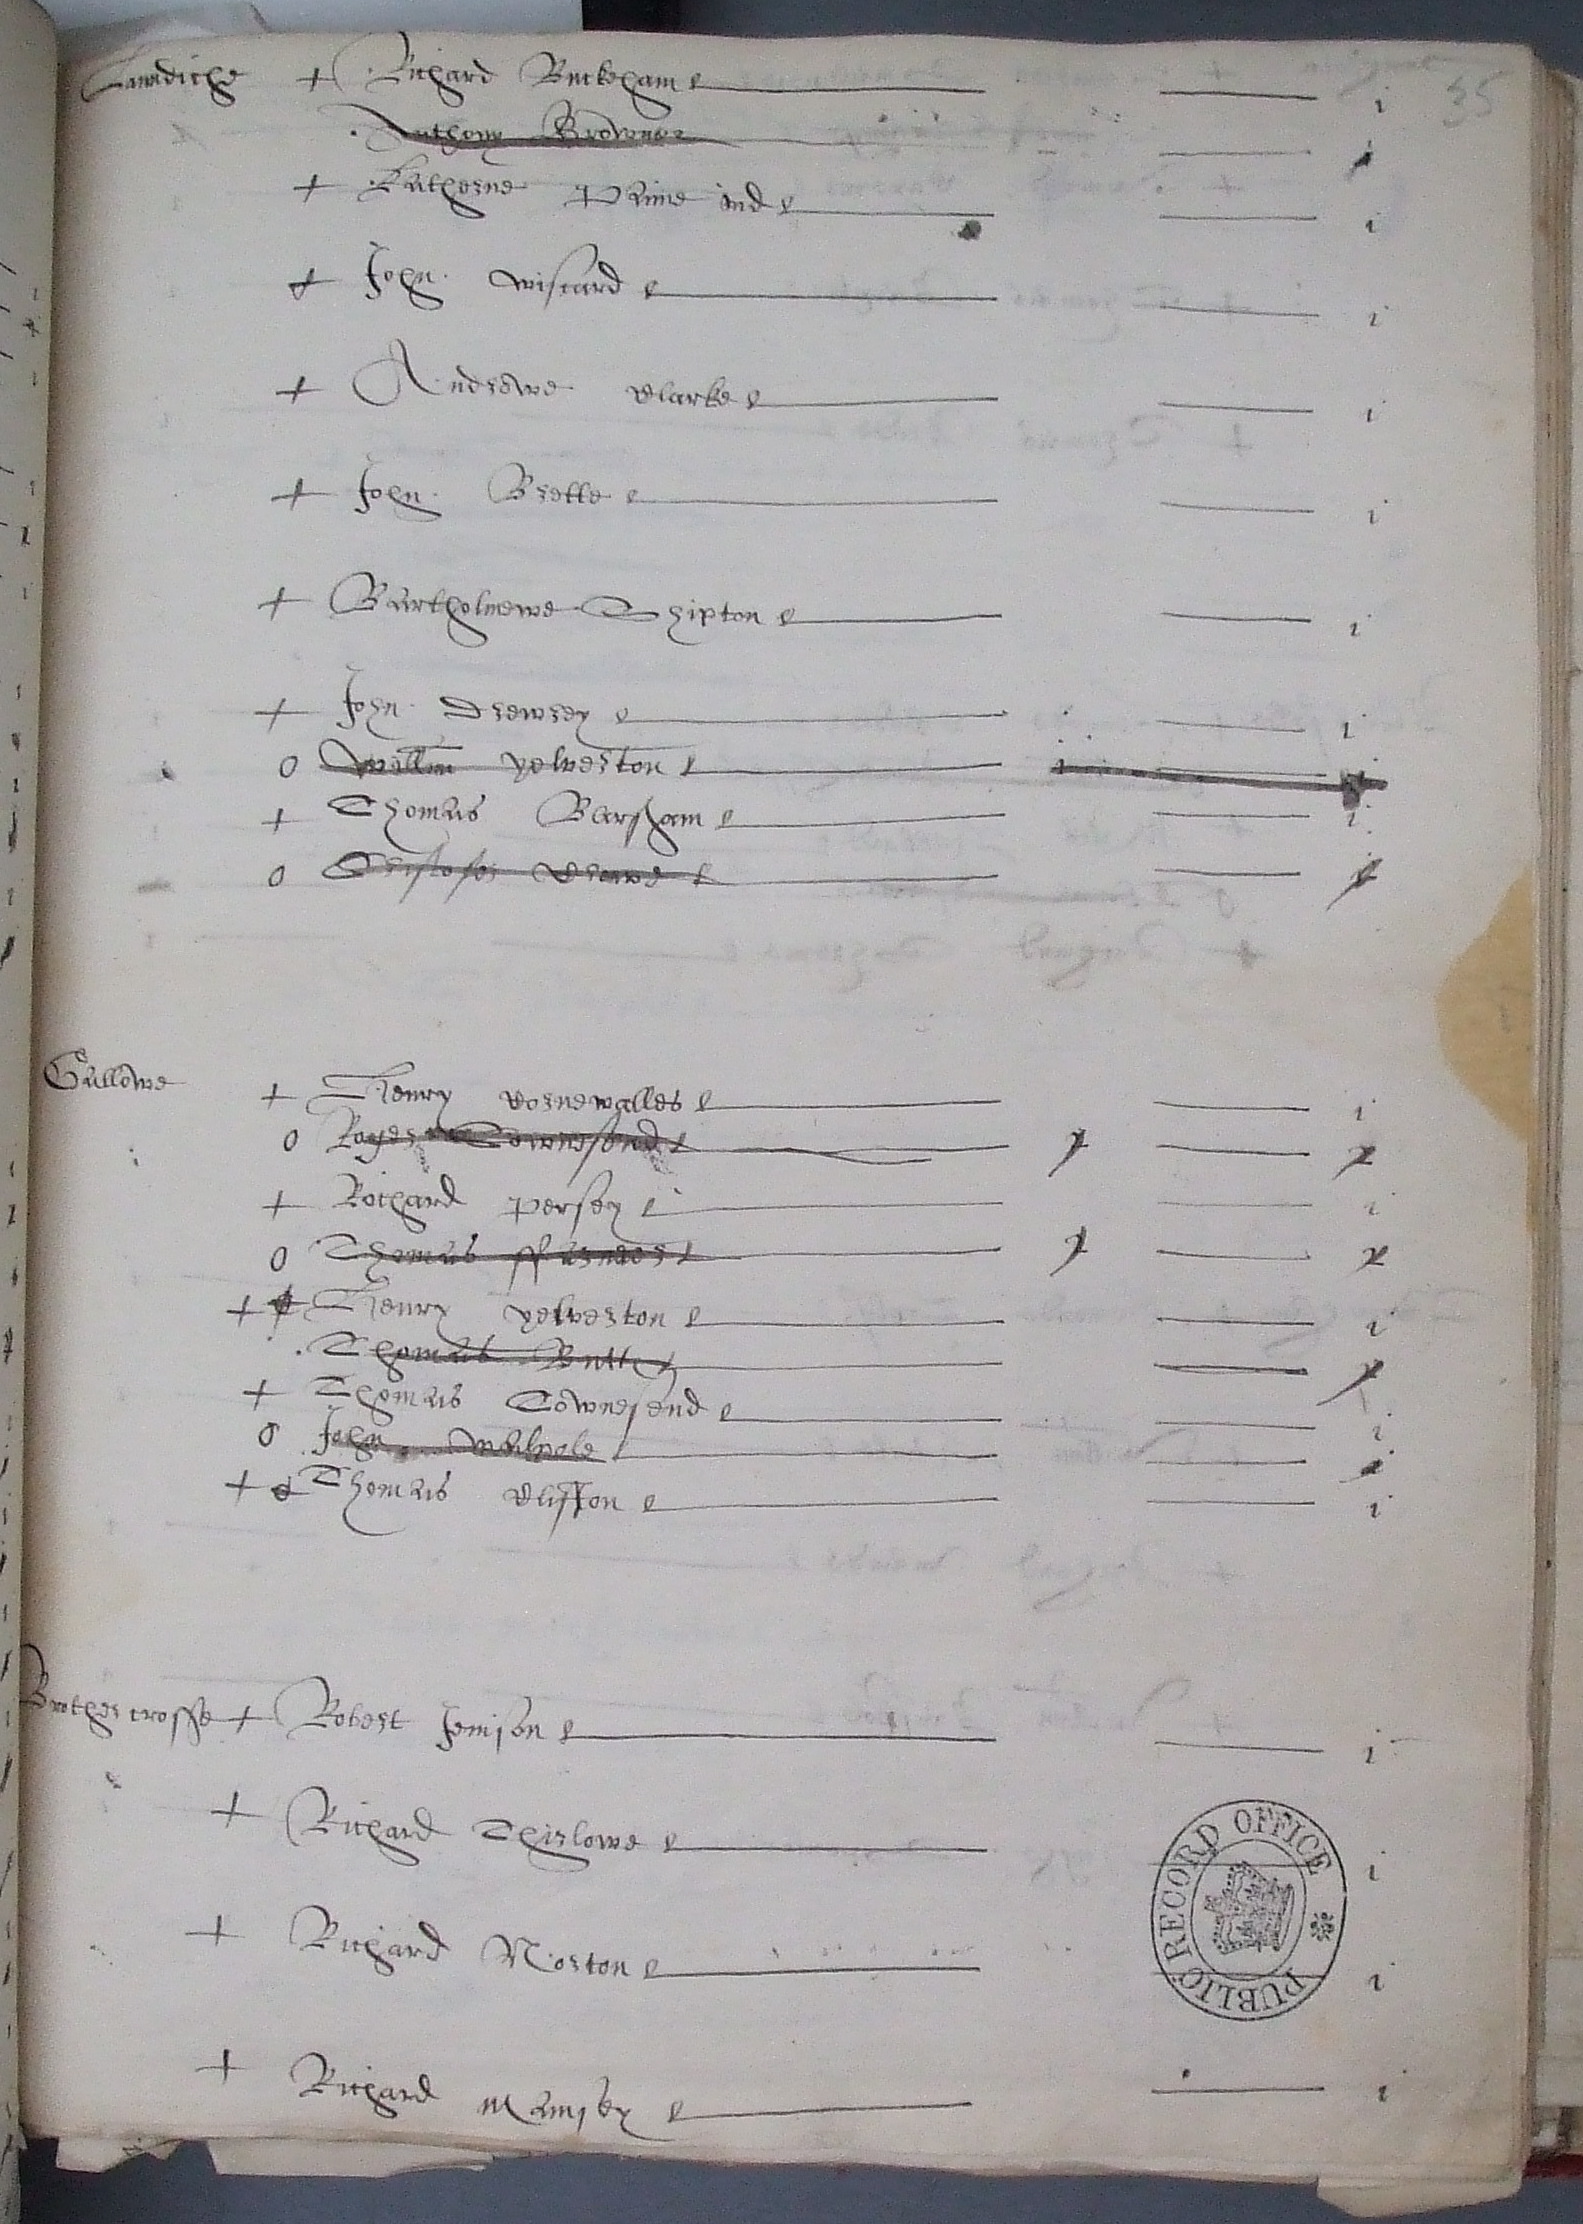 Laundiche + Richard Buckeham e i
Anthony Browne i
+ Katherne Prime wid e i
+ John wiscard e i
+ Andrewe Clarke e i
+ John Brette e i
+ Bartholmewe Shipton e i
+ John Drewrey e i
o Willm yelverton e i i
+ Thomas Barsham e i
o Cristofer Crowe e i
Gallowe + Henry Cornewalles e i
o Roger Townesend e i i
+ Richard Persey e i
o Thomas ffarmer e i i
+ + Henry yelverton e i
Thomas Butt i
+ Thomas Townesend e i
o John walpole i
+ o Thomas Clifton e i
Brothercrosse + Robert Jenison e i
+ Richard Thirlowe e i
+ Richard Norton e i
+ Richard Mansey e i
35
PUBLIC RECORD OFFICE